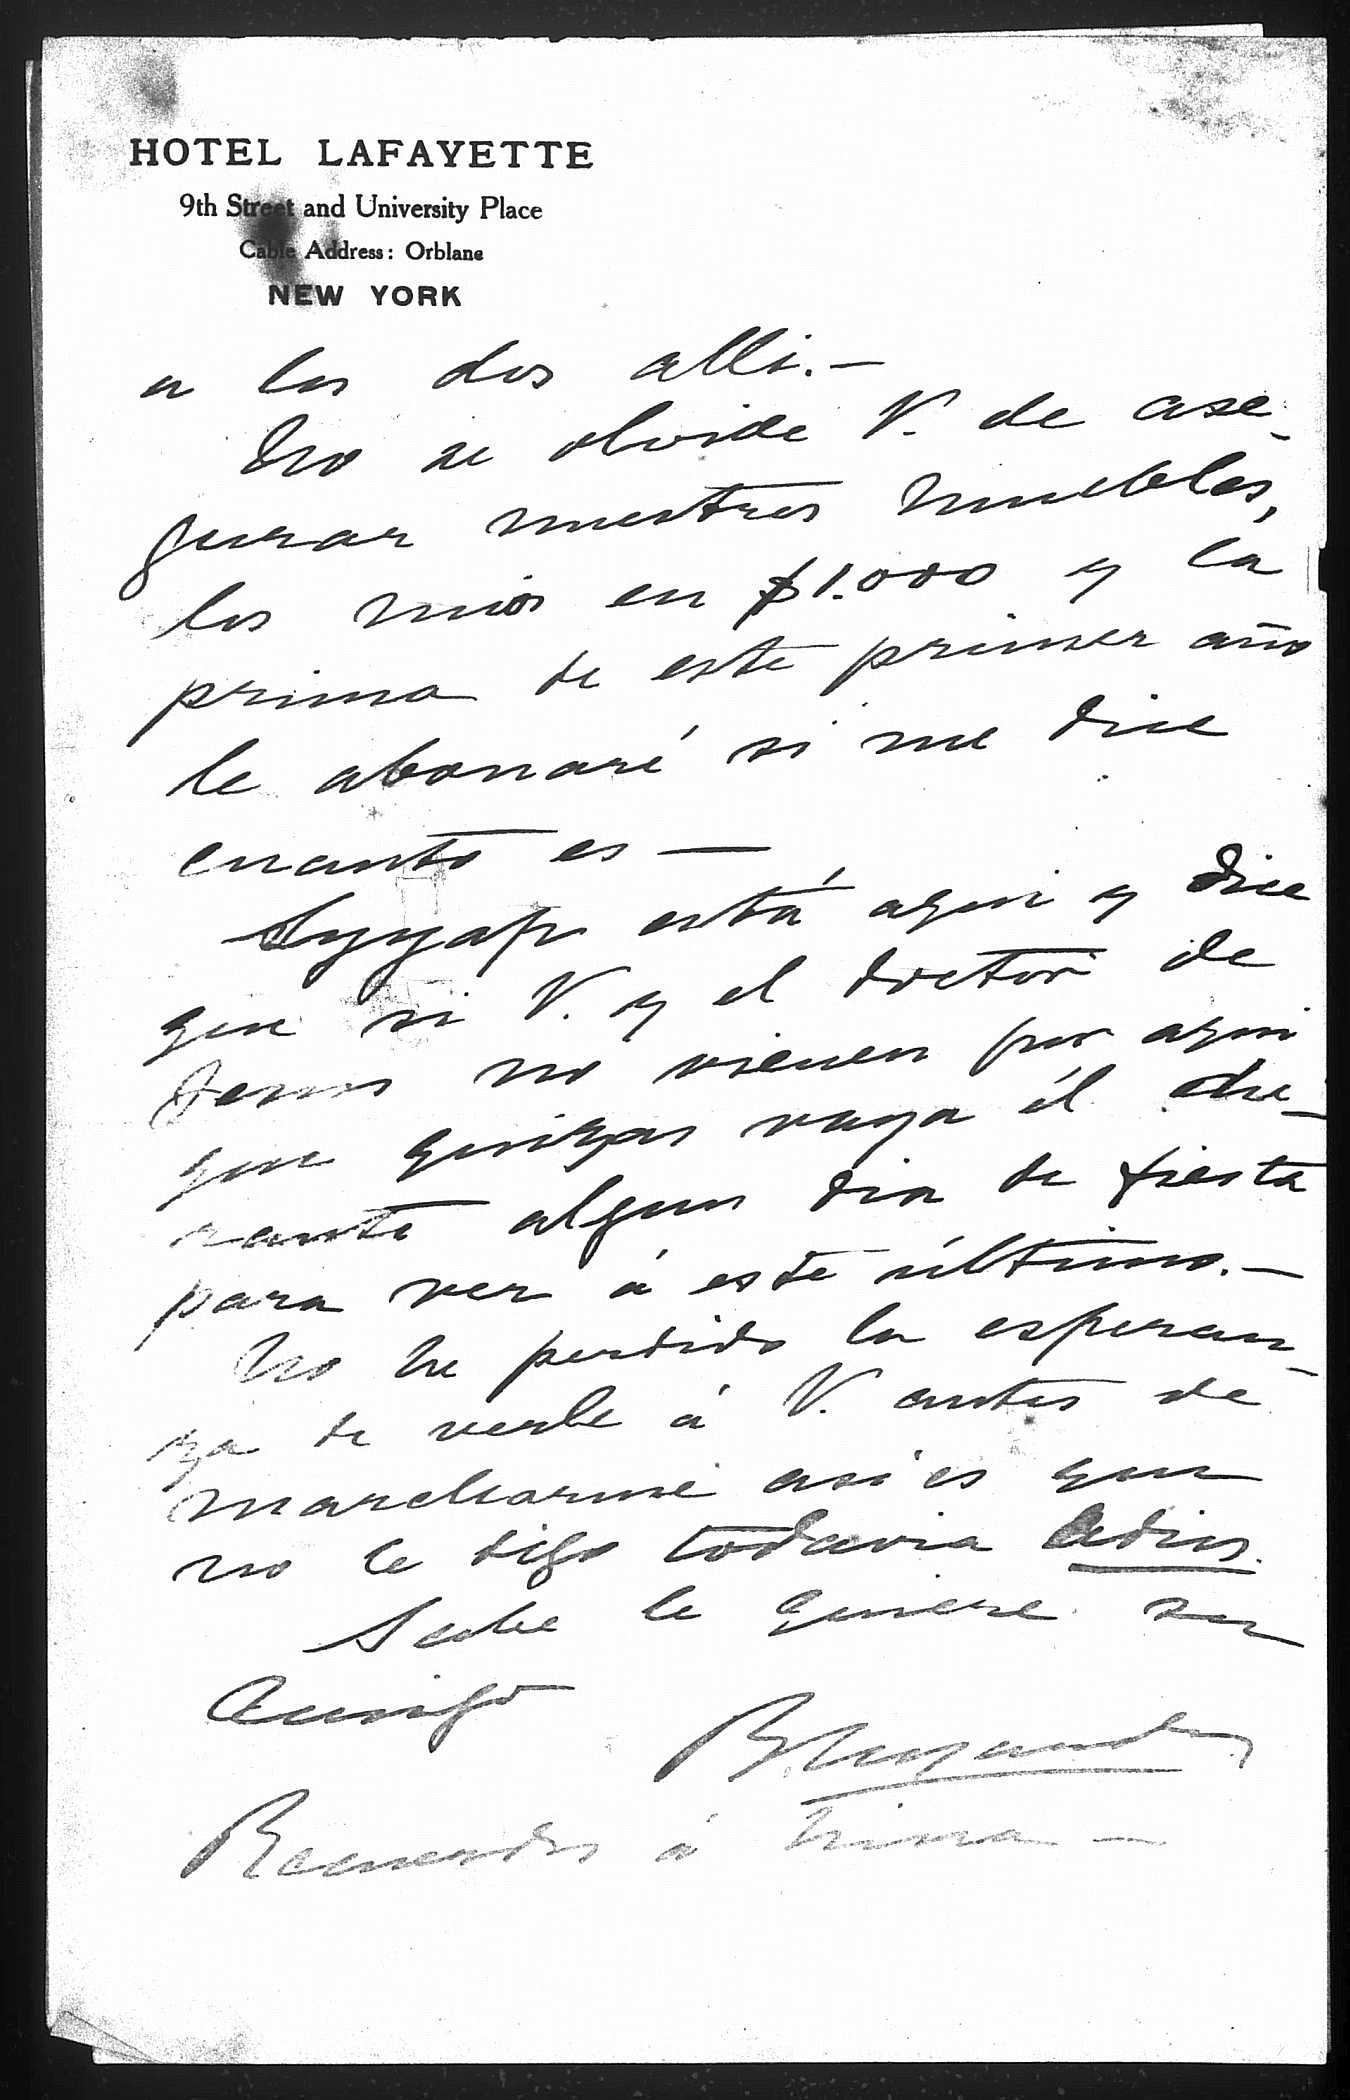 HOTEL LAFAYETTE
9th Street and University Place
Cable Address: Orblane
NEW YORK
a los dos alli.—
No se olvide V. de ase-
gurar nuestros muebles,
los mios en $1.000 y la
prima de este primer año
le abonaré si me dice
cuanto es —
está aqui y dice
que si V. y el doctor de
Jesus no vienen por aqui
que quizas vaya él du-
rante algun dia de fiesta
para ver á este último.—
No he perdido la esperan-
za de verle á V. antes de
marcharme asi es que
no le digo todavia Adios.
Sabe le quiere su
Amigo
Recuerdos á Trina —